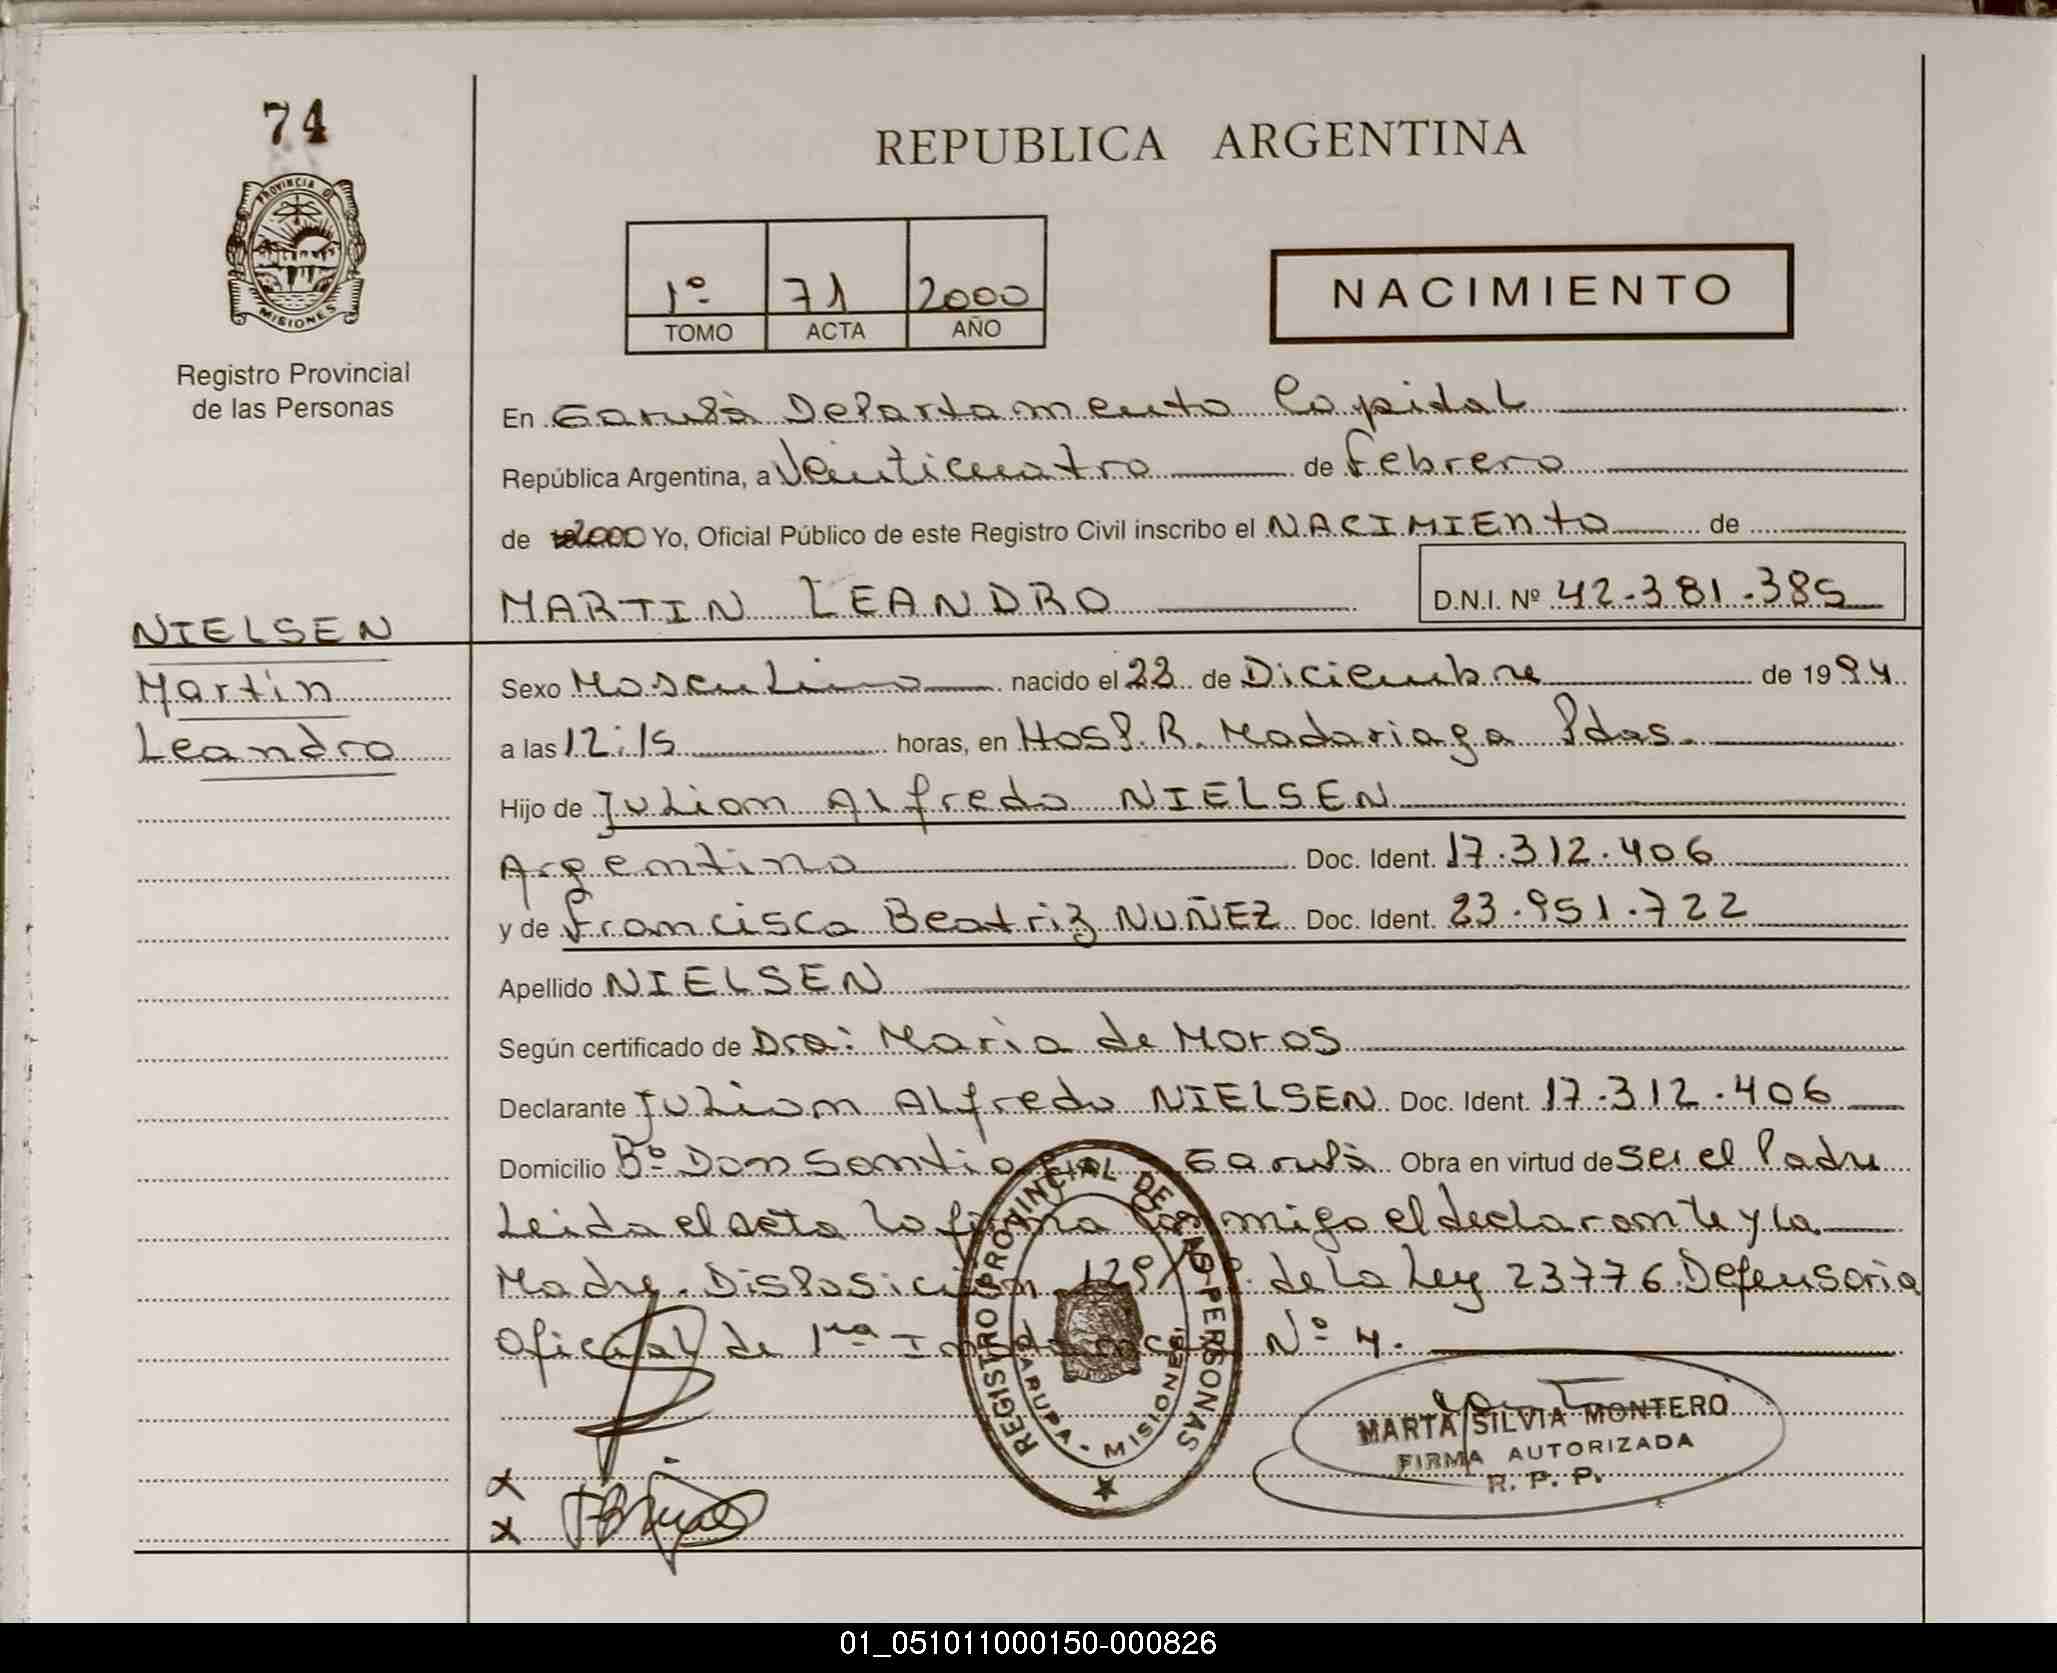 74
PROVINCIA D
MISIONES
Registro Provincial
de las Personas
REPUBLICA ARGENTINA
1º 71 2000
TOMO ACTA AÑO
NACIMIENTO
En Garupà Departamento Capital
República Argentina, a Veinticuatro de Febrero
de 2000 Yo, Oficial Público de este Registro Civil inscribo el NACIMIENTO de
MARTIN LEANDRO D.N.I. Nº 42.381.385
NIELSEN
Martin
Leandro
Sexo Masculino nacido el 22 de Diciembre de 1994
a las 12:15 horas, en Hosp. R. Madariaga Pdas.
Hijo de Julian Alfredo NIELSEN
Argentino Doc. Ident. 17.312.406
y de Francisca Beatriz NUÑEZ Doc. Ident. 23.951.722
Apellido NIELSEN
Según certificado de Dra: Maria de Moros
Declarante Julian Alfredo NIELSEN Doc. Ident. 17.312.406
Domicilio Bº Don Santiago Garupà Obra en virtud de ser el Padre
Leida el acta la firma conmigo el declarante y la
Madre. Disposición 129/ de la Ley 23776 Defensoria
Oficial de 1ra Instancia Nº 4.
REGISTRO PROVINCIAL DE LAS PERSONAS
GARUPA - MISIONES
MARTA SILVIA MONTERO
FIRMA AUTORIZADA
R. P. P.
x
x
01_051011000150-000826